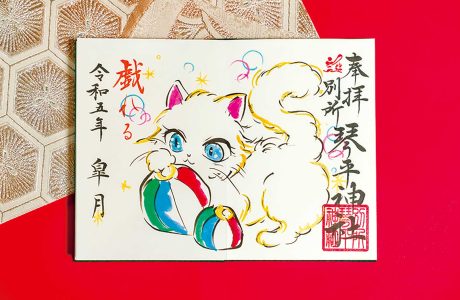 奉拝
別所琴平神社
戯れる
令和五年
皐月